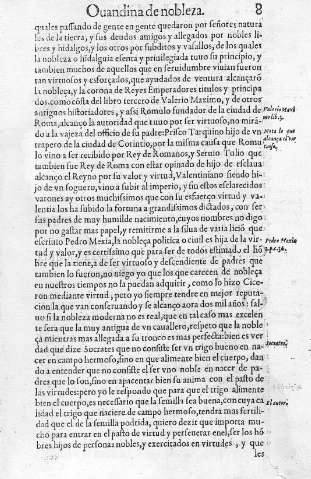 Quandina de nobleza. 8
quales passando de gente en gente quedaron por señores natura
les de la tierra, y sus deudos amigos y allegados por nobles li-
bres y hidalgos, y los otros por subditos y vasallos, de los quales
la nobleza o hidalguia esenta y priuilegiada tuuo su principio, y
tambien muchos de aquellos que en seruidumbre viuian fueron
tan virtuosos y esforçados, que ayudados de ventura alcançaro̅
la nobleza, y la corona de Reyes Emperadores titulos y principa
dos. como co̅sta del libro tercero de Valerio Maximo, y de otros
antiguos historiadores, y assi Romulo fundador de la ciudad de
Roma, alcanço la autoridad que tuuo por ser virtuoso, no miran-
do a la vajeza del officio de su padre: Prisco Tarquino hijo de vn
trapero de la ciudad de Corintio, por la misma causa que Romu
lo vino a ser recibido por Rey de Romanos, y Sergio Tolio que
tambien fue Rey de Roma con estar opinado de hijo de esclaua
alcanço el Reyno por su valor y virtud, Valentiniano siendo hi-
jo de vn foguero, vino a subir al imperio, y sin estos esclarecidos
varones ay otros muchissimos que con su esfuerço virtud y va-
lentia los ha subido la fortuna a grandissimos dictados, con ser
sus padres de muy humilde nacimiento, cuyos nombres no digo
por no gastar mas papel, y remitirme a la silua de varia licio̅ que
escriuio Pedro Mexia, la nobleça politica o ciuil es hija de la vir-
tud y valor, y es certissimo que para ser de todos estimado el ho̅
bre que la tiene, a de ser virtuoso y descendiente de padres que
tambien lo fueron, no niego yo que los que carecen de nobleza
en nuestros tiempos no la puedan adquirir, como lo hizo Cice-
ron mediante virtud, pero yo siempre tendre en mejor reputa-
cion la que van conseruando y se alcanço aora dos mil años: sal-
uo si la nobleza moderna no es real, que en tal caso mas excelen
te sera que la muy antigua de vn cauallero, respeto que la noble
ça mientras mas allegada a su tronco es mas perfecta: bien es ver
dad que dize Socrates que no consiste ser vn trigo bueno en na-
cer en campo hermoso, sino en que alimente bien el cuerpo, dan
do a entender que no consiste el ser vno noble en nacer de pa-
dres que lo son, sino en apacentar bien su anima con el pasto de
las virtudes: pero yo le respondo que para que el trigo alimente
bien el cuerpo, es necessario que la semilla sea buena, con cuya ca
lidad el trigo que naciere de campo hermoso, tendra mas fertili-
dad que el de la semilla podrida, quiero dezir que importa mu-
cho para entrar en el pasto de virtud y perseuerar en el, ser los ho̅
bres hijos de personas nobles, y exercitados en virtudes, y que
les
Valerio Maxi
Pedro Mexia
Socrates.
El autor.